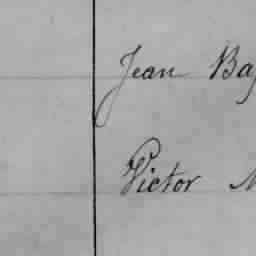 Jean Ba
Victor